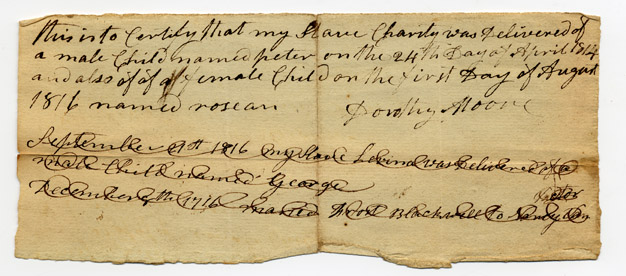 this is to Certify that my Slave Charity was Delivered of
a male Child named peter on the 24th Day of April 1814
and also of a female Child on the first Day of August
1816 named rosean Dorothy Moore
September 1816 my Slave was Delivered of a
male Child named George
December 1716 married Blackwell to